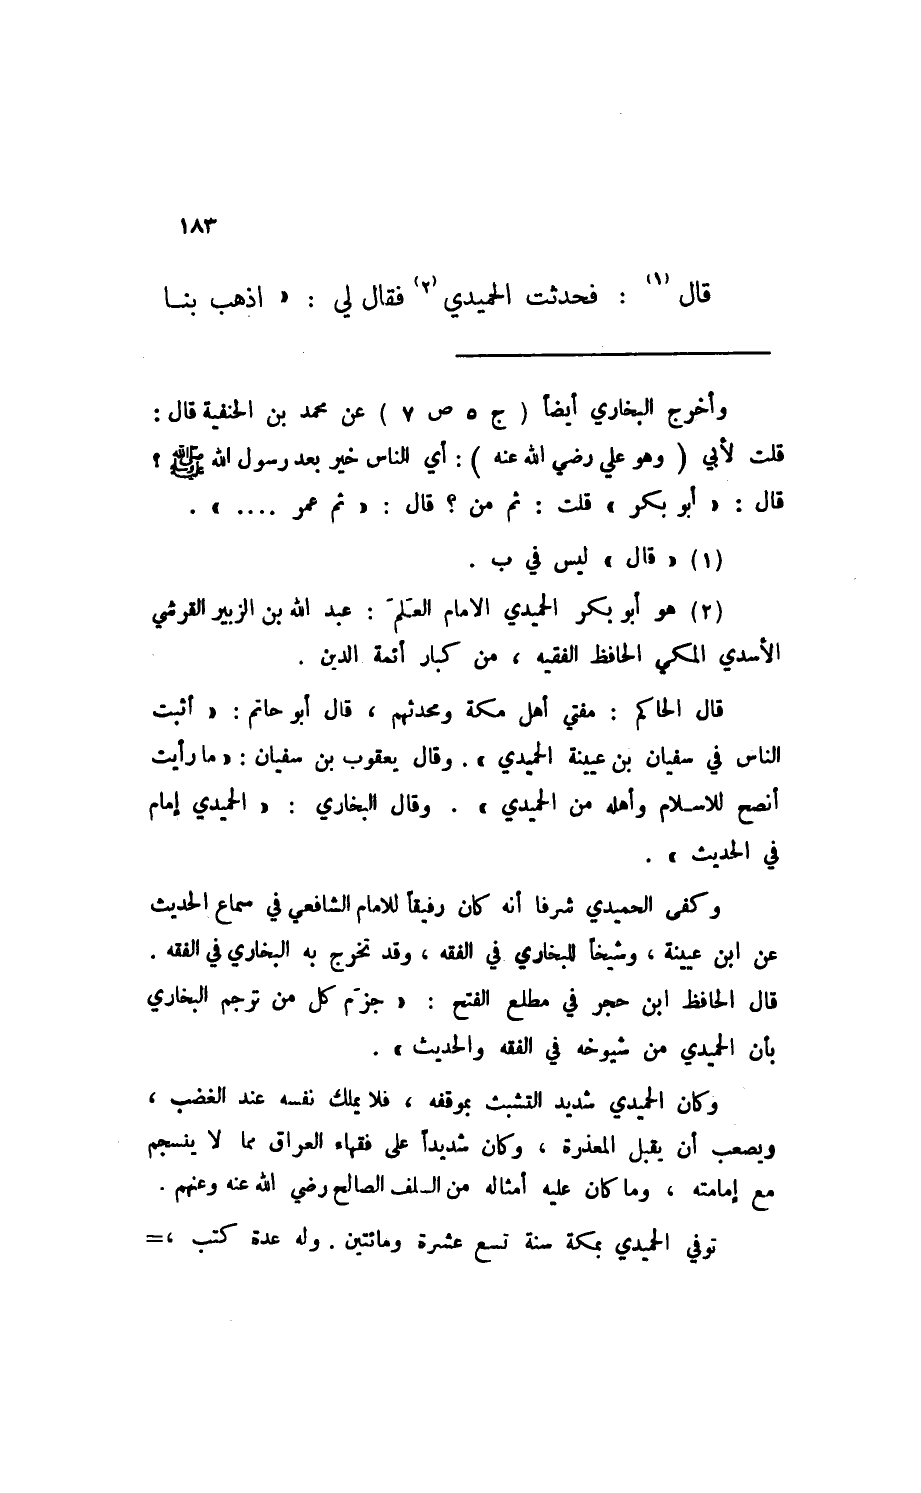 ١٨٣
قال (١) : فحدثت الحميدي (٢) فقال لي : « اذهب بنـا
وأخرج البخاري أيضاً ( ج ٥ ص ٧ ) عن محمد بن الحنفية قال :
قلت لأبي ( وهو علي رضي الله عنه ) : أي الناس خير بعد رسول الله ﷺ ؟
قال : « أبو بكر » قلت : ثم من ؟ قال : « ثم عمر .... » .
(١) « قال » ليس في ب .
(٢) هو أبو بكر الحميدي الامام العَلَم : عبد الله بن الزبير القرشي
الأسدي المكي الحافظ الفقيه ، من كبار أئمة الدين .
قال الحاكم : مفتي أهل مكة ومحدثهم ، قال أبو حاتم : « أثبت
الناس في سفيان بن عيينة الحميدي » . وقال يعقوب بن سفيان : « ما رأيت
أنصح للاسـلام وأهله من الحميدي » . وقال البخاري : « الحميدي إمام
في الحديث » .
وكفى الحميدي شرفا أنه كان رفيقاً للامام الشافعي في سماع الحديث
عن ابن عيينة ، وشيخاً للبخاري في الفقه ، وقد تخرج به البخاري في الفقه .
قال الحافظ ابن حجر في مطلع الفتح : « جزَم كل من ترجم البخاري
بأن الحميدي من شيوخه في الفقه والحديث » .
وكان الحميدي شديد التشبث بموقفه ، فلا يملك نفسه عند الغضب ،
ويصعب أن يقبل المعذرة ، وكان شديداً على فقهاء العراق بما لا ينسجم
مع إمامته ، وما كان عليه أمثاله من السلف الصالح رضي الله عنه وعنهم .
توفي الحميدي بمكة سنة تسع عشرة ومائتين . وله عدة كتب ،=